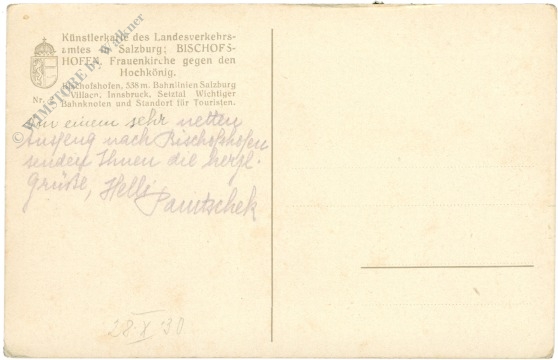 Künstlerkarte des Landesverkehrs-
amtes Salzburg; BISCHOFS-
HOFEN, Frauenkirche gegen den
Hochkönig.
Bischofshofen, 538 m. Bahnlinien Salzburg
Nr. Villach, Innsbruck, Selztal Wichtiger
Bahnknoten und Standort für Touristen.
© WIMSTORE by Winkner
Von einem sehr netten
Ausflug nach Bischofshofen
senden Ihnen die herzl.
Grüße, Helli
28.X.30